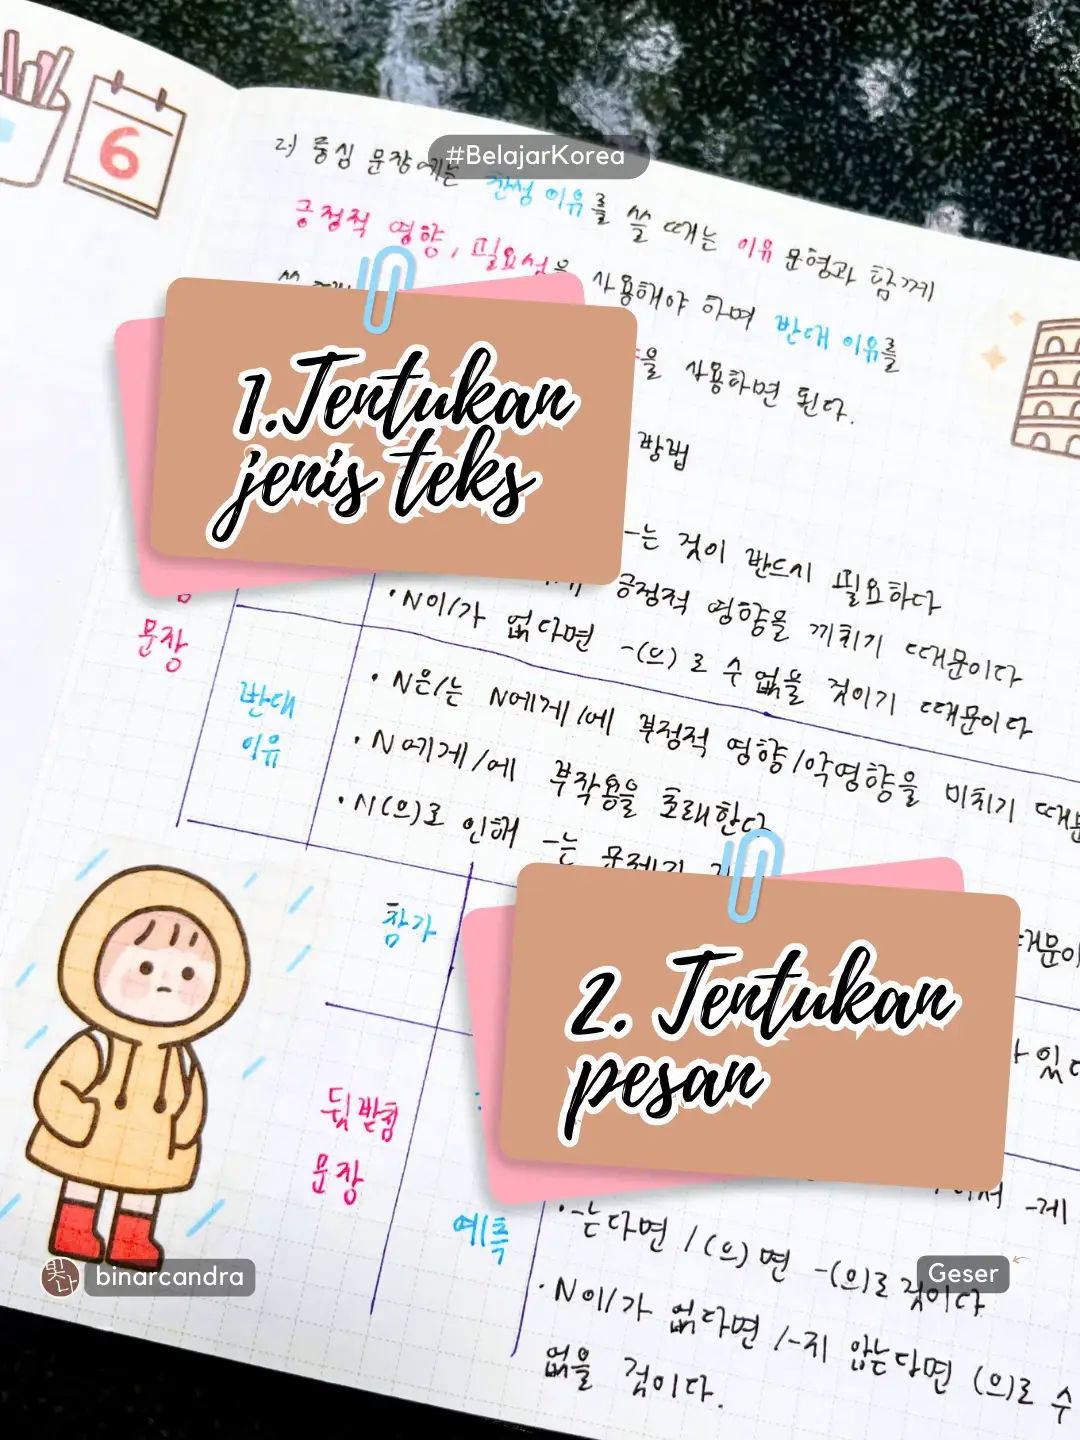 6
#BelajarKorea
2) 중심 문장에는 찬성 이유를 쓸 때는 이유 문형과 함께
긍정적 영향, 필요성을 사용해야 하며 반대 이유를
을 사용하면 된다.
방법
1.Tentukan
jenis teks
-는 것이 반드시 필요하다
긍정적 영향을 끼치기 때문이다
·N이/가 없다면 -(으)로 수 없을 것이기 때문이다
문장
반대
이유
·N은/는 N에게/에 부정적 영향/악영향을 미치기 때문
·N에게/에 부작용을 초래한다
·N(으)로 인해 -는 문제가
참가
2. Tentukan
pesan
있다
뒷받침
문장
-게
예측
·-는다면 /(으)면 -(으)로 것이다
·N이/가 없다면 /-지 않는다면 (으)로 수
없을 것이다.
빛나
binarcandra
Geser